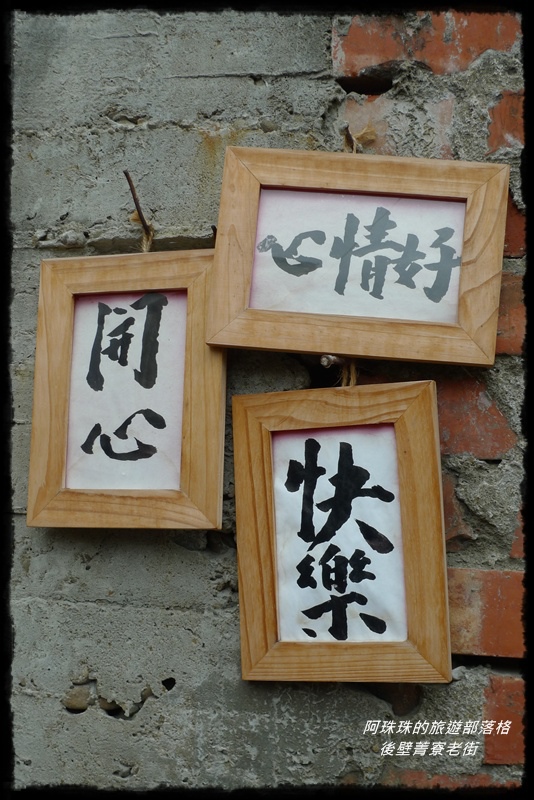 心情好
開心
快樂
阿珠珠的旅遊部落格
後壁菁寮老街